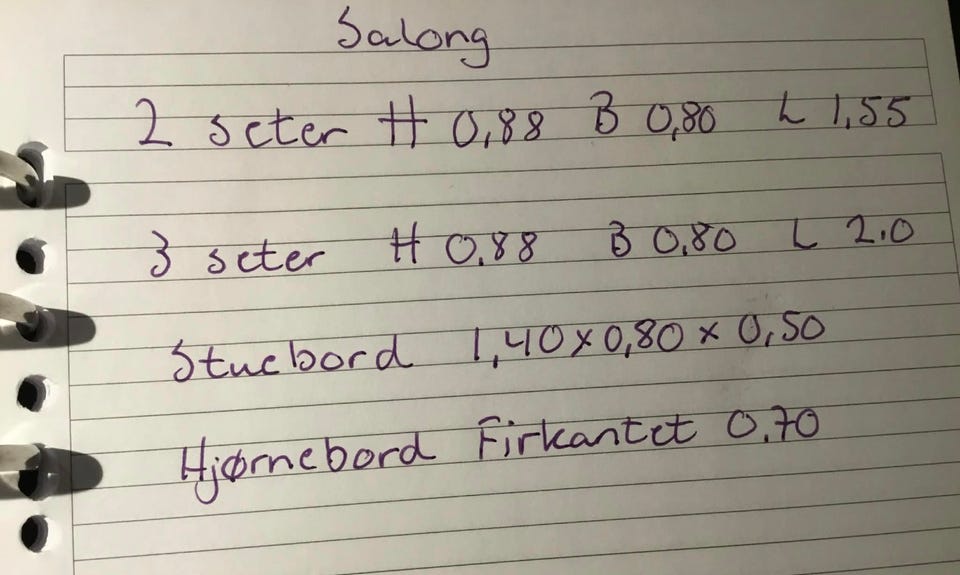 Salong
2 seter H 0,88 B 0,80 L 1,55
3 seter H 0.88 B 0.80 L 2.0
Stuebord 1,40 x 0,80 x 0,50
Hjørnebord Firkantet 0.70